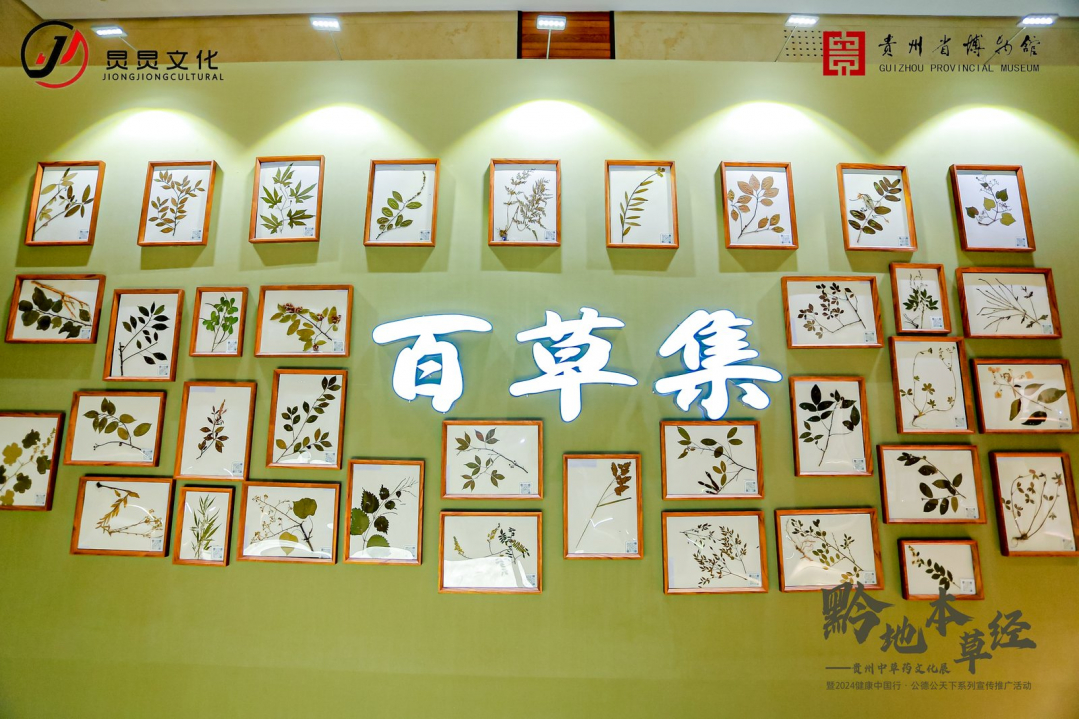 炅炅文化
JIONGJIONGCULTURAL
贵州省博物馆
GUIZHOU PROVINCIAL MUSEUM
百草集
黔地本草经
——贵州中草药文化展
暨2024健康中国行·公德公天下系列宣传推广活动